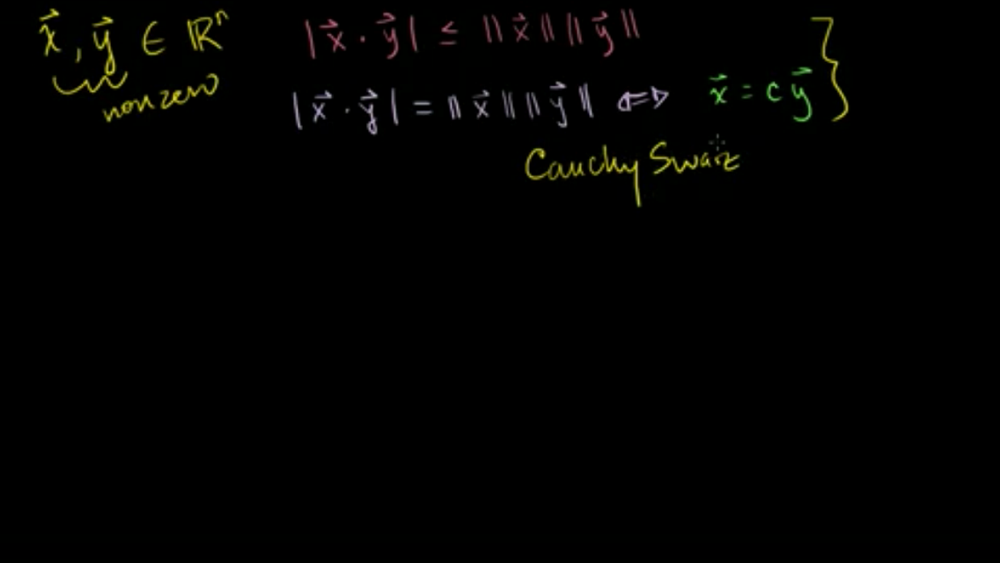 x⃗, y⃗ ∈ ℝⁿ
nonzero
|x⃗ · y⃗| ≤ ‖x⃗‖ ‖y⃗‖
|x⃗ · y⃗| = ‖x⃗‖ ‖y⃗‖ ⇔ x⃗ = c y⃗
Cauchy Swarz